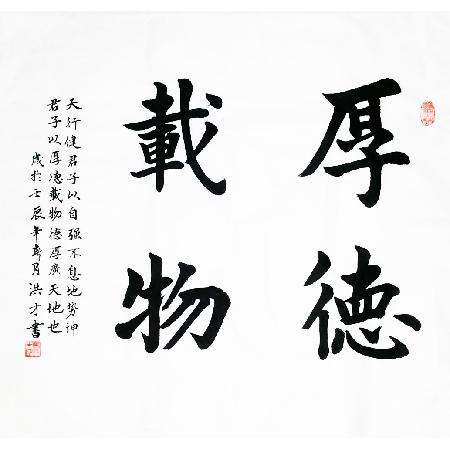 厚德
載物
天行健君子以自强不息地势坤
君子以厚德載物德厚廣天地也
成於壬辰年月洪才書